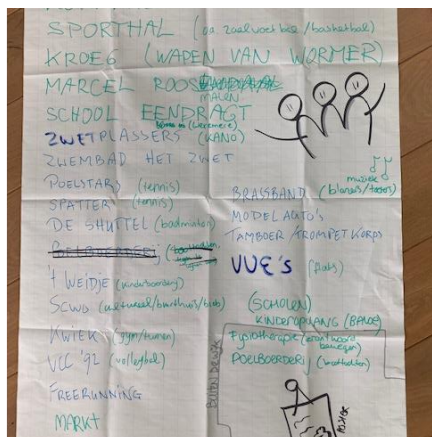 SPORTHAL (oa zaalvoetbal/basketbal)
KROEG (WAPEN VAN WORMER)
MARCEL ROOS
MALEN
SCHOOL EENDRAGT
ZWETPLASSERS (KANO)
ZWEMBAD HET ZWET
POELSTARS (tennis)
SPATTER (tennis)
DE SHUTTEL (badminton)
't WEIDJE (kinderboerderij)
SCWO
KWIEK (gym/turnen)
VCC '92 (volleybal)
FREERUNNING
MARKT
muziek
BRASSBAND
MODELAUTO'S
TAMBOER/TROMPETKORPS
VVE'S (flats)
(SCHOLEN)
KINDEROPVANG
Fysiotherapie (verantwoord bewegen)
POELBOERDERIJ
BUITEN DE WIJK